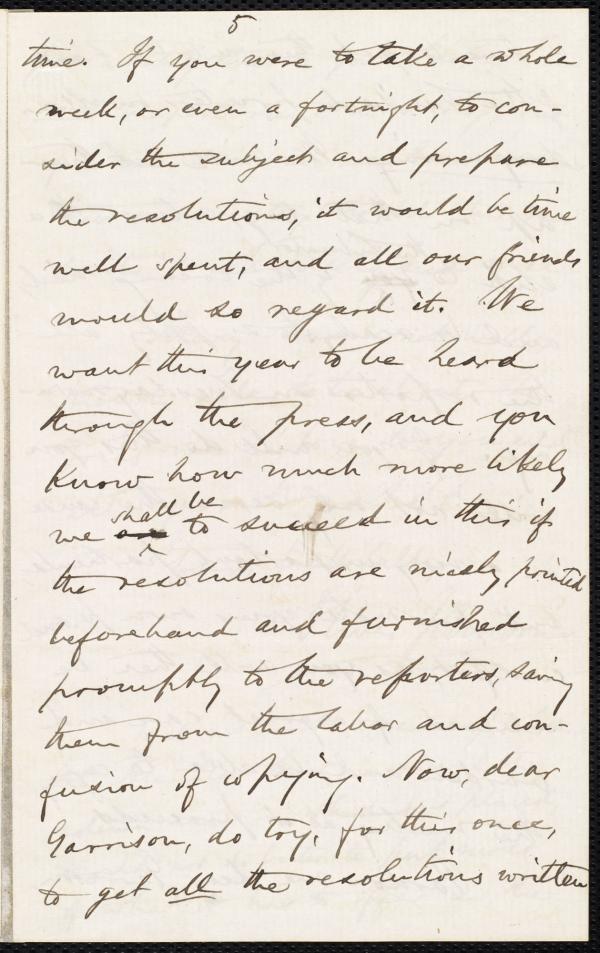 5
time. If you were to take a whole
week, or even a fortnight, to con-
sider the subject and prepare
the resolutions, it would be time
well spent, and all our friends
would so regard it. We
want this year to be heard
through the press, and you
know how much more likely
shall be
we are to succeed in this if
the resolutions are nicely printed
beforehand and furnished
promptly to the reporters, saving
them from the labor and con-
fusion of copying. Now, dear
Garrison, do try, for this once,
to get all the resolutions written